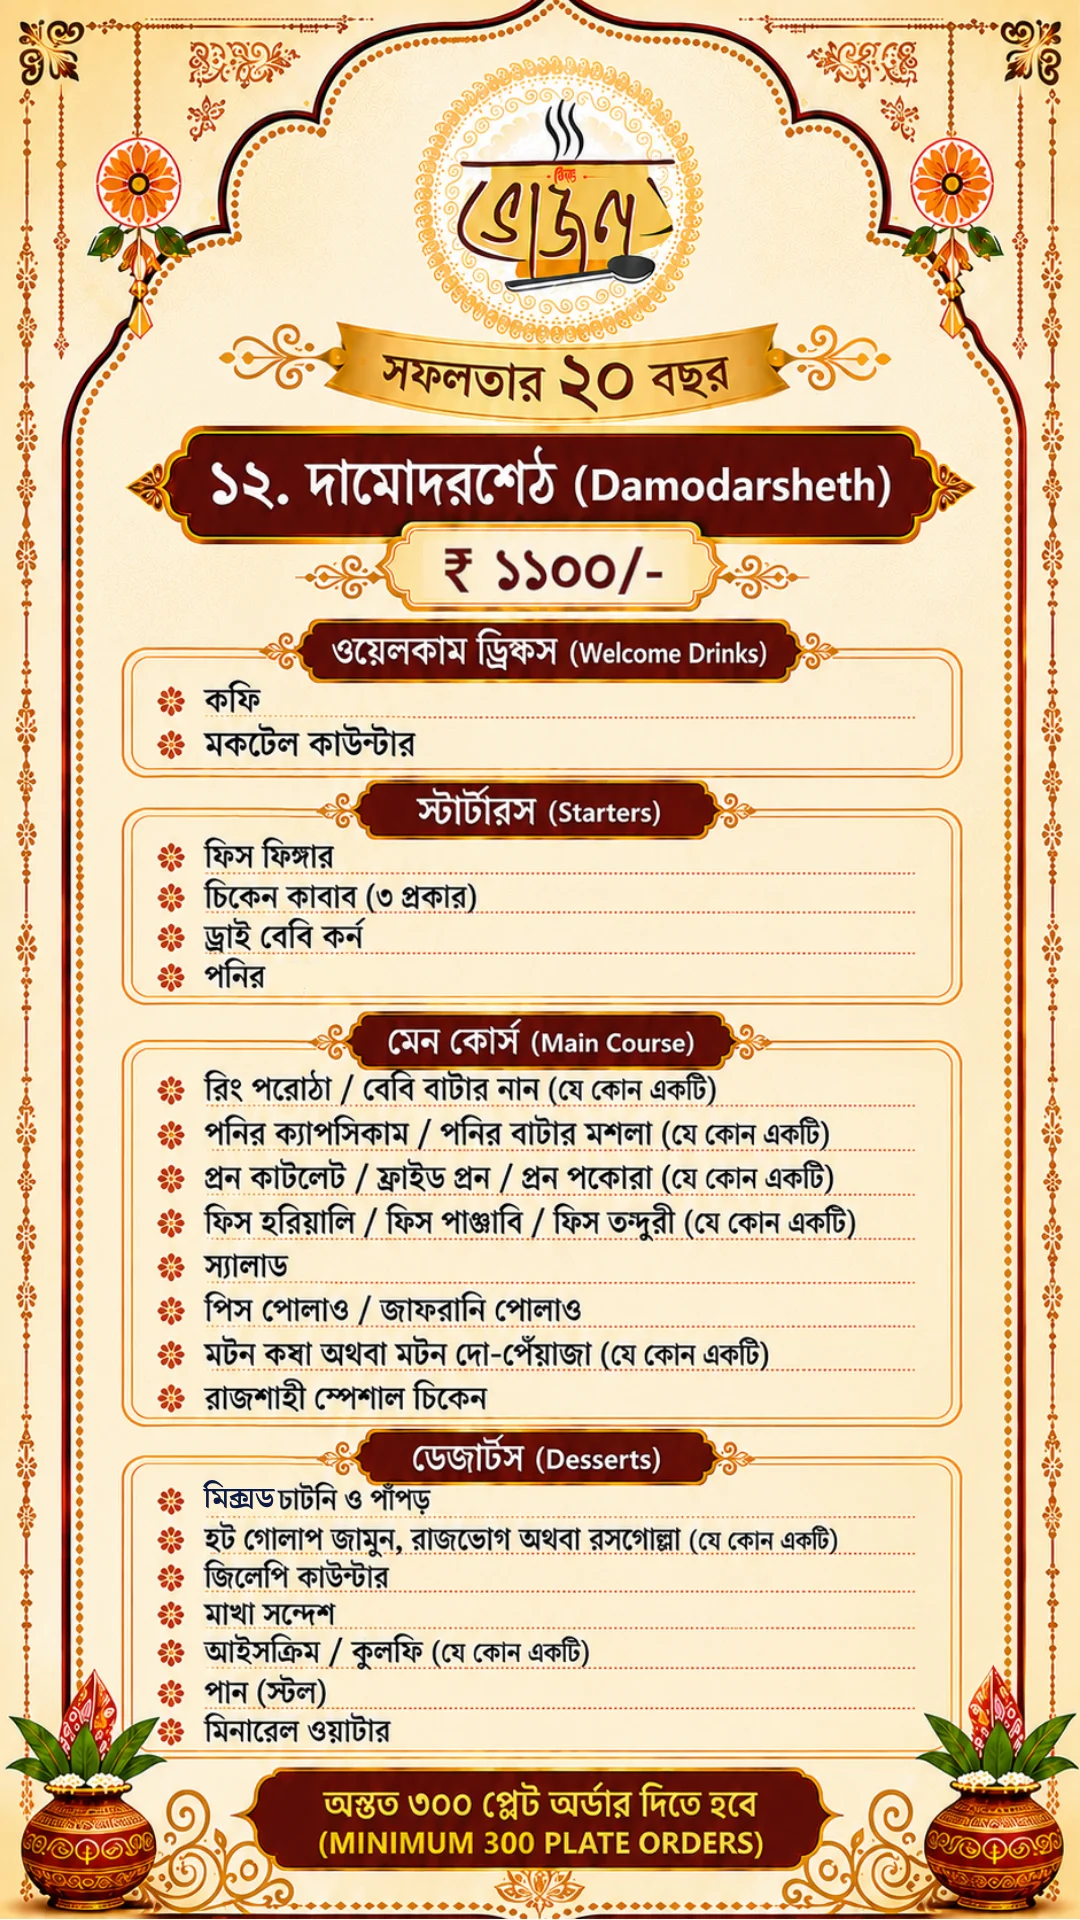 ভোজন
সফলতার ২০ বছর
১২. দামোদরশেঠ (Damodarsheth)
₹ ১১০০/-
ওয়েলকাম ড্রিঙ্কস (Welcome Drinks)
কফি
মকটেল কাউন্টার
স্টার্টারস (Starters)
ফিস ফিঙ্গার
চিকেন কাবাব (৩ প্রকার)
ড্রাই বেবি কর্ন
পনির
মেন কোর্স (Main Course)
রিং পরোঠা / বেবি বাটার নান (যে কোন একটি)
পনির ক্যাপসিকাম / পনির বাটার মশলা (যে কোন একটি)
প্রন কাটলেট / ফ্রাইড প্রন / প্রন পকোরা (যে কোন একটি)
ফিস হরিয়ালি / ফিস পাঞ্জাবি / ফিস তন্দুরী (যে কোন একটি)
স্যালাড
পিস পোলাও / জাফরানি পোলাও
মটন কষা অথবা মটন দো-পেঁয়াজা (যে কোন একটি)
রাজশাহী স্পেশাল চিকেন
ডেজার্টস (Desserts)
মিক্সড চাটনি ও পাঁপড়
হট গোলাপ জামুন, রাজভোগ অথবা রসগোল্লা (যে কোন একটি)
জিলেপি কাউন্টার
মাখা সন্দেশ
আইসক্রিম / কুলফি (যে কোন একটি)
পান (স্টল)
মিনারেল ওয়াটার
অন্তত ৩০০ প্লেট অর্ডার দিতে হবে
(MINIMUM 300 PLATE ORDERS)